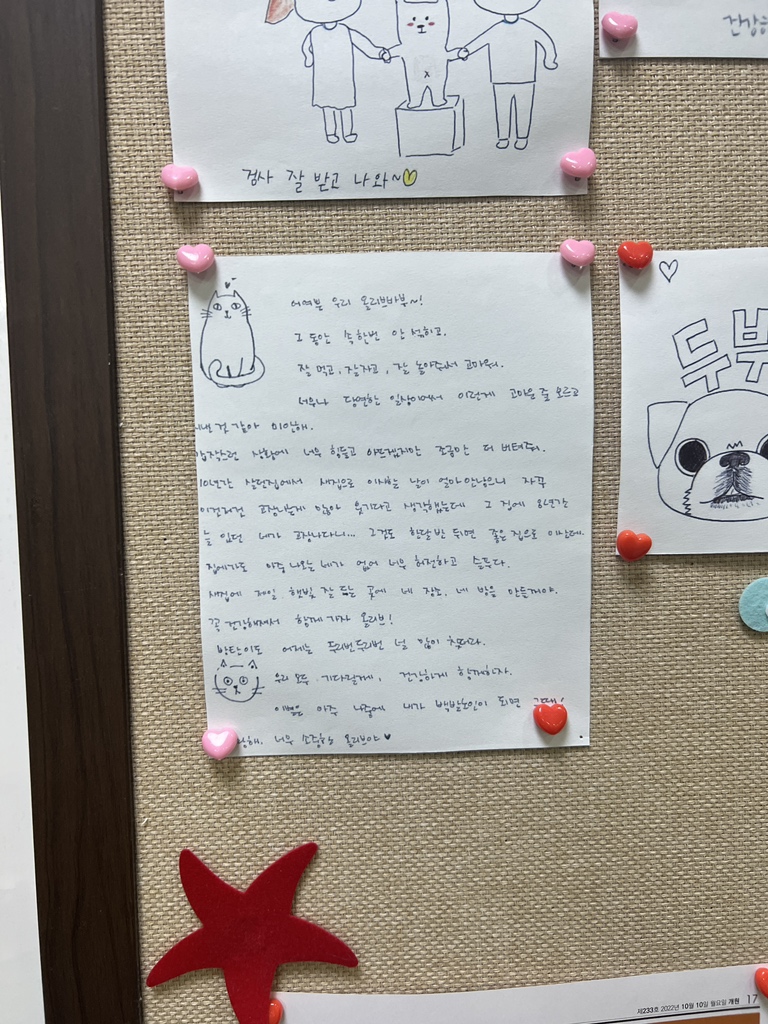 건강
검사 잘 받고 나와~
어여쁜 우리 올리브바부~!
그 동안 속 한번 안 썩히고.
잘 먹고, 잘 자고, 잘 놀아줘서 고마워.
너무나 당연한 일상이여서 이런게 고마운 줄 모르고
지내걸 같아 미안해.
갑작스런 상황에 너무 힘들고 아프겠지만 조금만 더 버텨줘.
10년간 살던집에서 새집으로 이사할 날이 얼마 안남으니 자꾸
이것저것 고장난게 많아 웃기다고 생각했는데 그 집에 8년간
늘 있던 네가 고장나다니... 그것도 한달 반 뒤면 좋은 집으로 이사인데.
집에가도 마중 나오는 네가 없어 너무 허전하고 슬프다.
새집에 제일 햇빛 잘 드는 곳에 네 장소, 네 방을 만들거야.
꼭 건강해져서 함께 가자 올리브!
방탄이도 어제는 두리번두리번 널 많이 찾더라.
우리 모두 기다릴게, 건강하게 함께하자.
이별은 아주 나중에 내가 백발노인이 되면 그때!
너무 소중한 올리브야
두부
제233호 2022년 10월 10일 월요일 개원 17